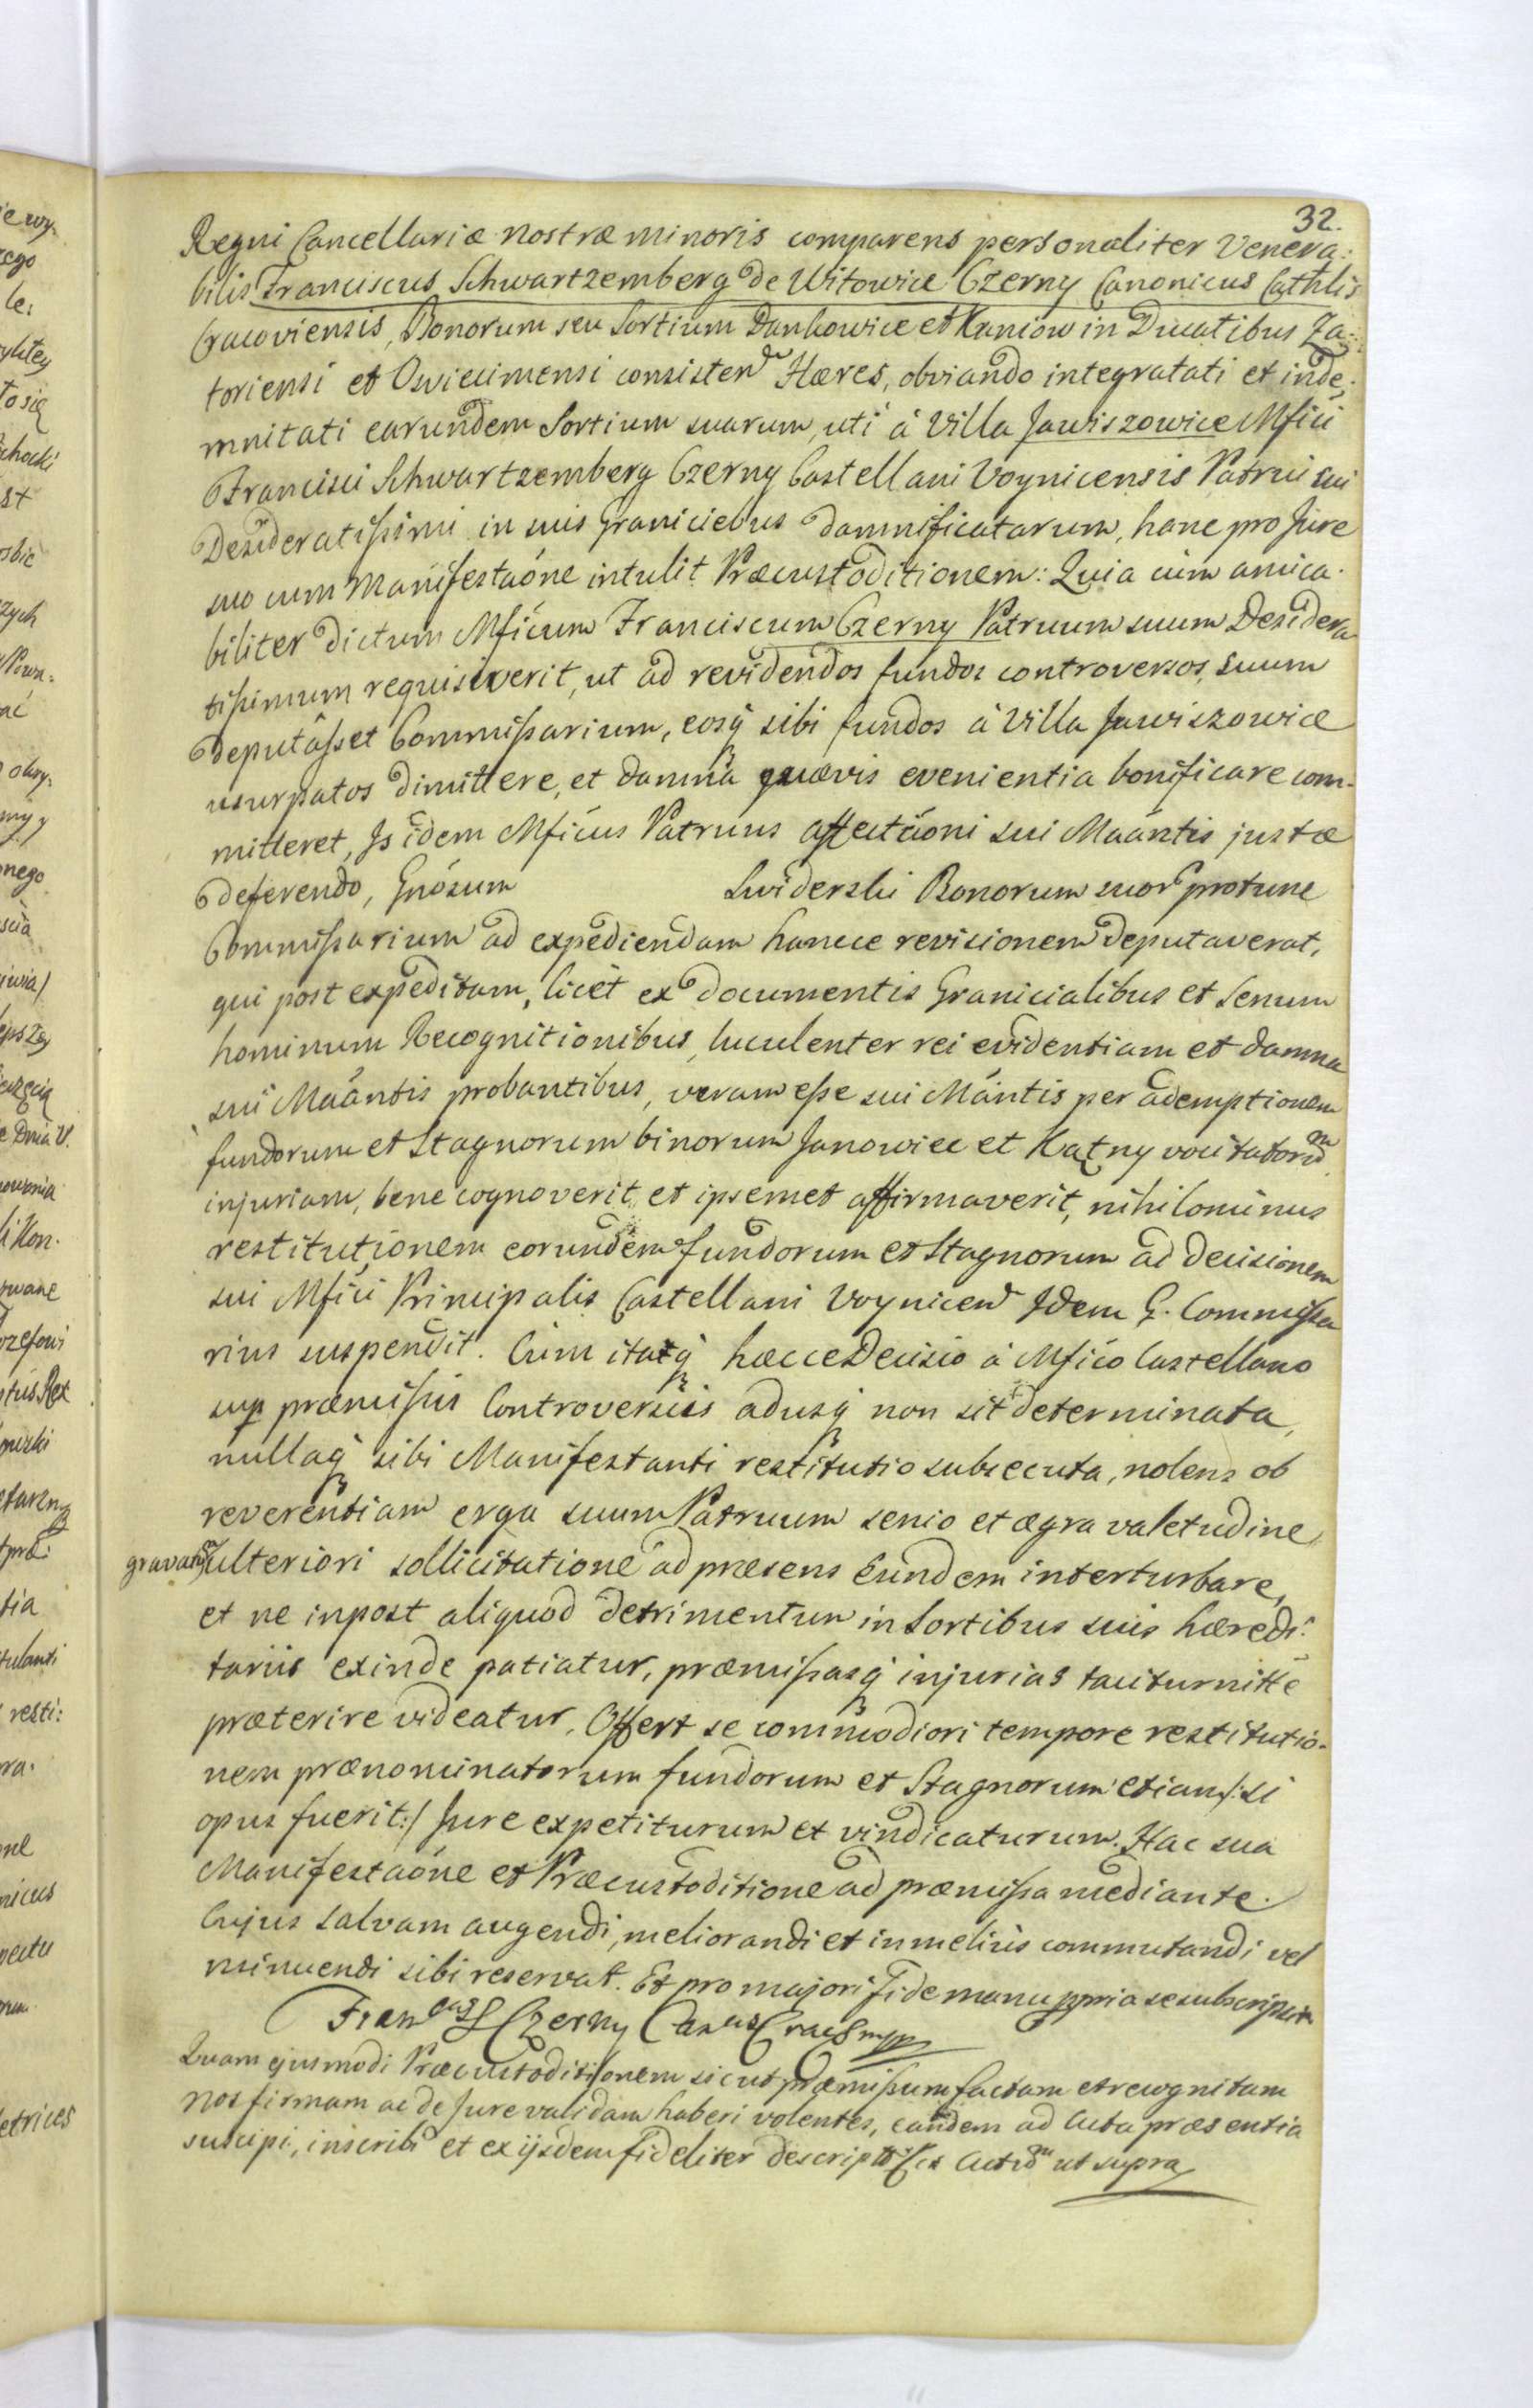 32.
Regni Cancellariæ nostræ minoris comparens personaliter Venera:
bilis Franciscus Schwartzemberg de Witowice Czerny Canonicus Cathlis
Cracoviensis, Bonorum seu Sortium Dankowice et Kaniow in Ducatibus Za:
toriensi et Oswiecimensi consisten Hæres, obviando integratati et inde:
mnitati earundem Sortium suarum, uti à Villa Jawiszowice Mfici
Francisci Schwartzemberg Czerny Castellani Voynicensis Patrui sui
Desideratissimi in suis Graniciebus damnificatarum, hanc pro Jure
suo cum Manifestaóne intulit Præcustoditionem: Quia cùm amica.
biliter dictum Mficum Franciscum Czerny Patruum suum Desidera
tissimum requisiverit, ut ad revidendos fundos controversos, suum
deputâsset Commissarium, eosq sibi fundos à Villa Jawiszowice
usurpatos dimittere, et damna quævis evenientia bonificare com-
mitteret, Is idem Mficus Patruus affectaoni sui Maántis justæ
deferendo, Gnósum Swiderski Bonorum suor protunc
Commissarium ad expediendam hancce revisionem deputaverat,
qui post expeditam, licèt ex documentis Granicialibus et Senum
hominum Recognitionibus, luculenter rei evidentiam et damna
sui Maántis probantibus, veram esse sui Mántis per ademptionem
fundorum et Stagnorum binorum Janowiec et Kątny vocitatorũ
injuriam, bene cognoverit et ipsemet affirmaverit, nihilominus
restitutionem eorundem fundorum et Stagnorum ad decisionem
sui Mfici Principalis Castellani Voynicen Idem G. Commissa
rius suspendit. Cùm itaq hæcce Decisio à Mfico Castellano
sup præmissis Controversiis adusq non sit determinata,
nullaq sibi Manifestanti restitutio subsecuta, nolens ob
reverentiam erga suum Patruum senio et ægra valetudine
gravatum ulteriori sollicitatione ad præsens Eundem interturbare,
et ne inpost aliquod detrimentum in Sortibus suis hæredi:
tariis exinde patiatur, præmissasq injurias taciturnitte
præterire videatur. Offert se commodiori tempore restitutio-
nem prænominatorum fundorum et Stagnorum etiam /: si
opus fuerit :/ Jure expetiturum et vindicaturum. Hac sua
Manifestaóne et Præcustoditione ad præmissa mediante.
Cujus salvam augendi, meliorandi et in meliùs commutandi vel
minuendi sibi reservat. Et pro majori Fide manu ppria se subscripsit
Francus S Czerny Canus Crac mpp
Quam ejusmodi Præcustoditionem sicut præmissum factam et recognitam
Nos firmam ac de Jure validam haberi volentes, eandem ad Acta præsentia
suscipi, inscribi et ex ijsdem fideliter describi Actũ ut supra